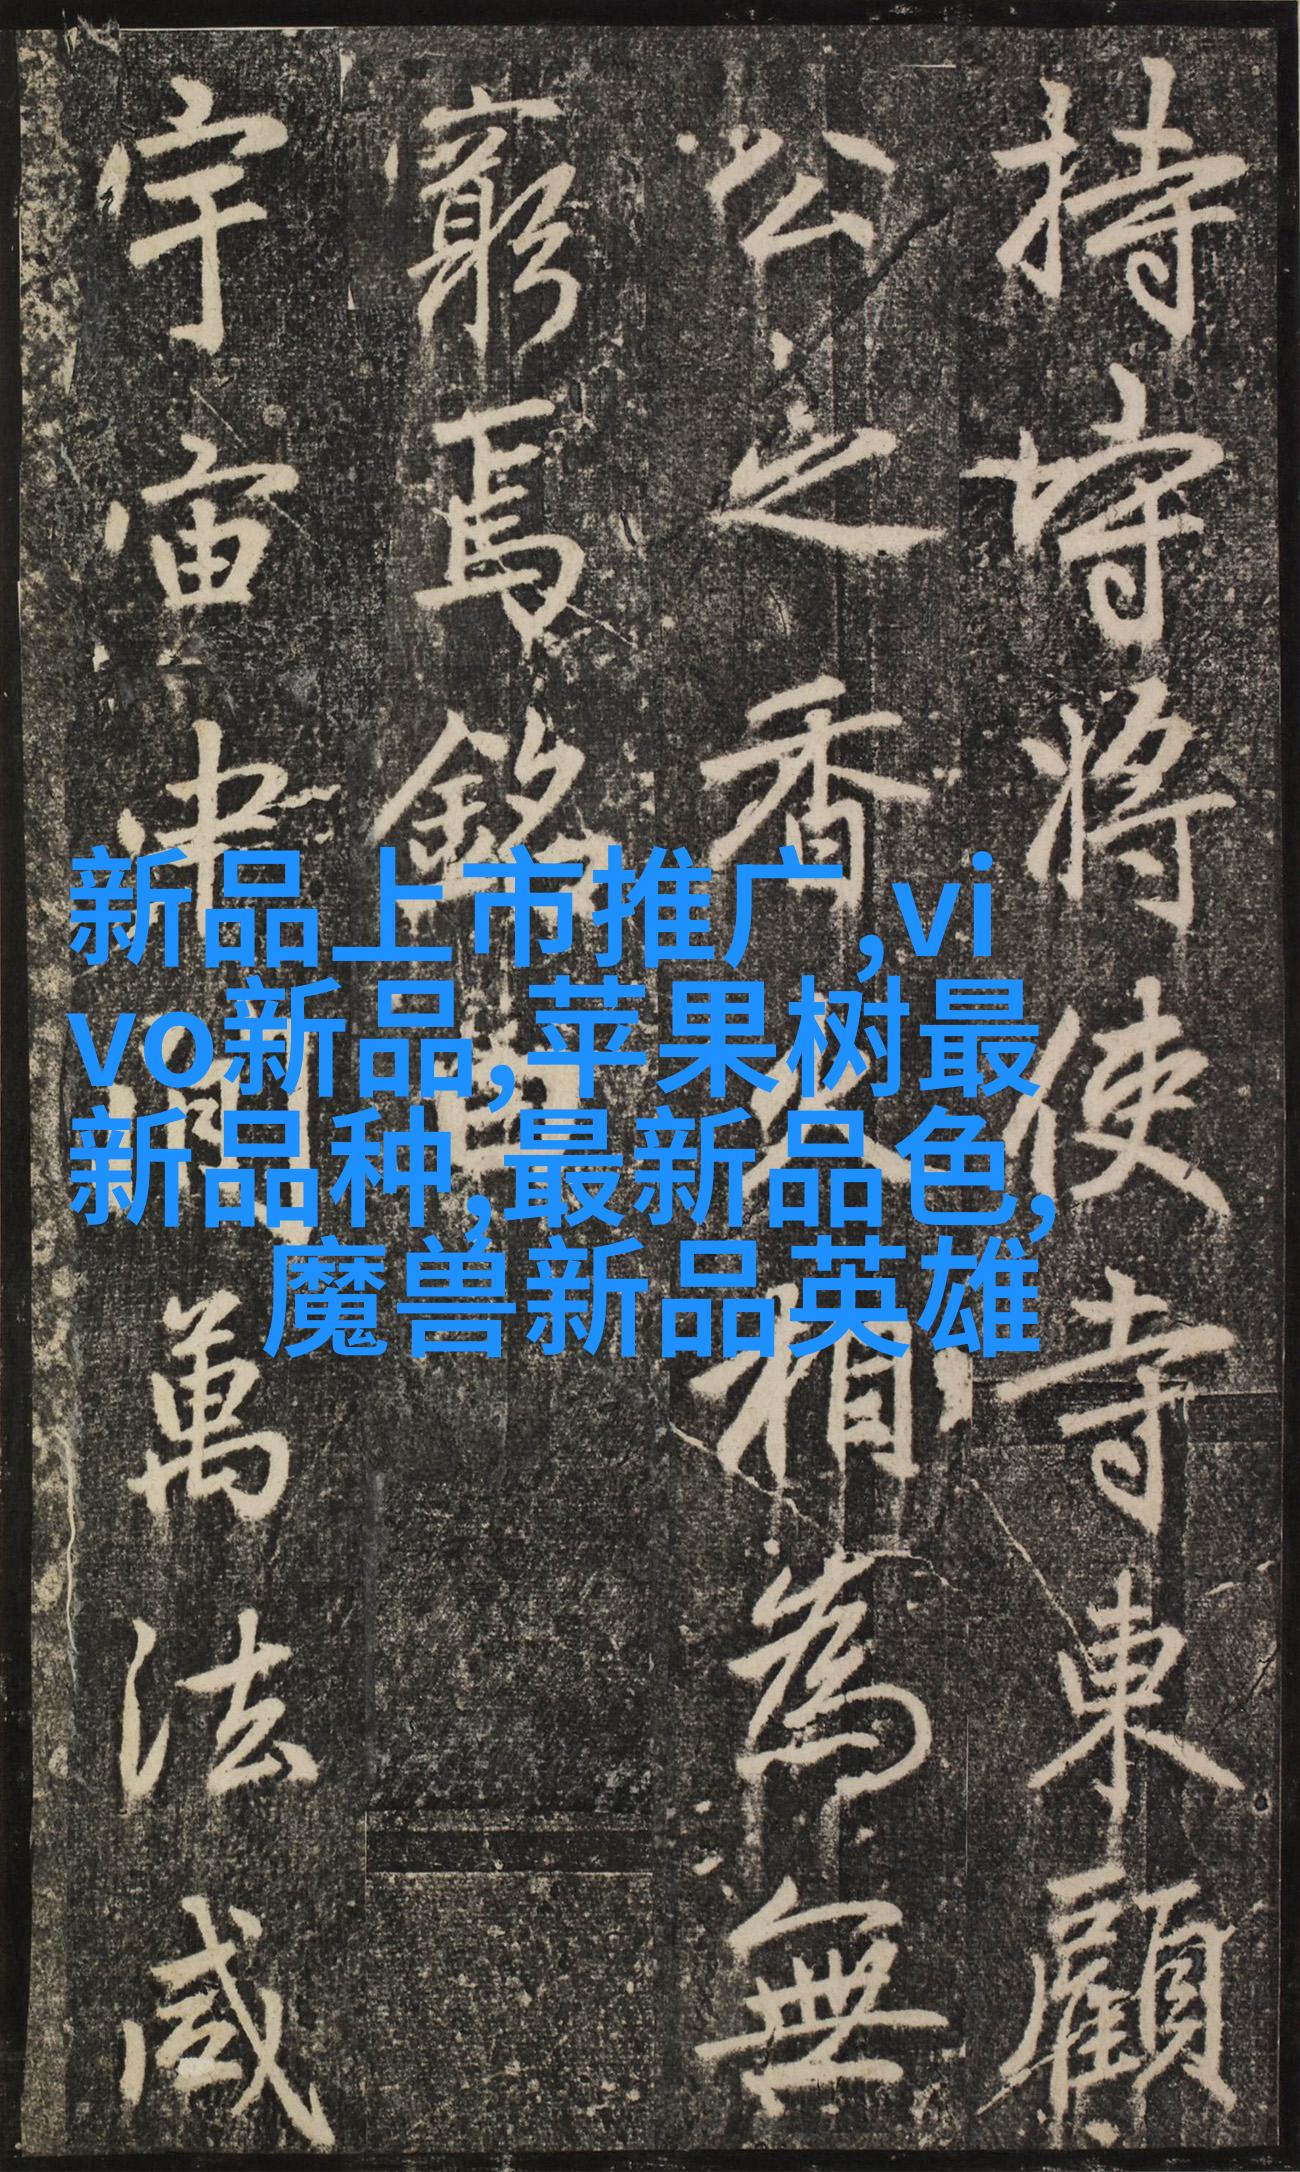 新品上市推广,vi
vo新品,苹果树最
新品种,最新品色,
魔兽新品英雄
持將使寺東顧
公之香火相為無
窮焉銘曰
宇宙中間萬法咸